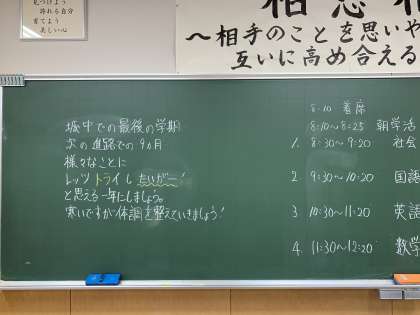 見つけよう
誇れる自分
育てよう
美しい心
～相手のことを思いや
互いに高め合える
城中での最後の学期
次の進路での9ヵ月
様々なことに
レッツトライしたいがー!
と思える一年にしましょう。
寒いですが体調を整えていきましょう!
8:10 着席
8:10～8:25 朝学活
1. 8:30～9:20 社会
2. 9:30～10:20 国語
3 10:30～11:20 英語
4. 11:30～12:20 数学